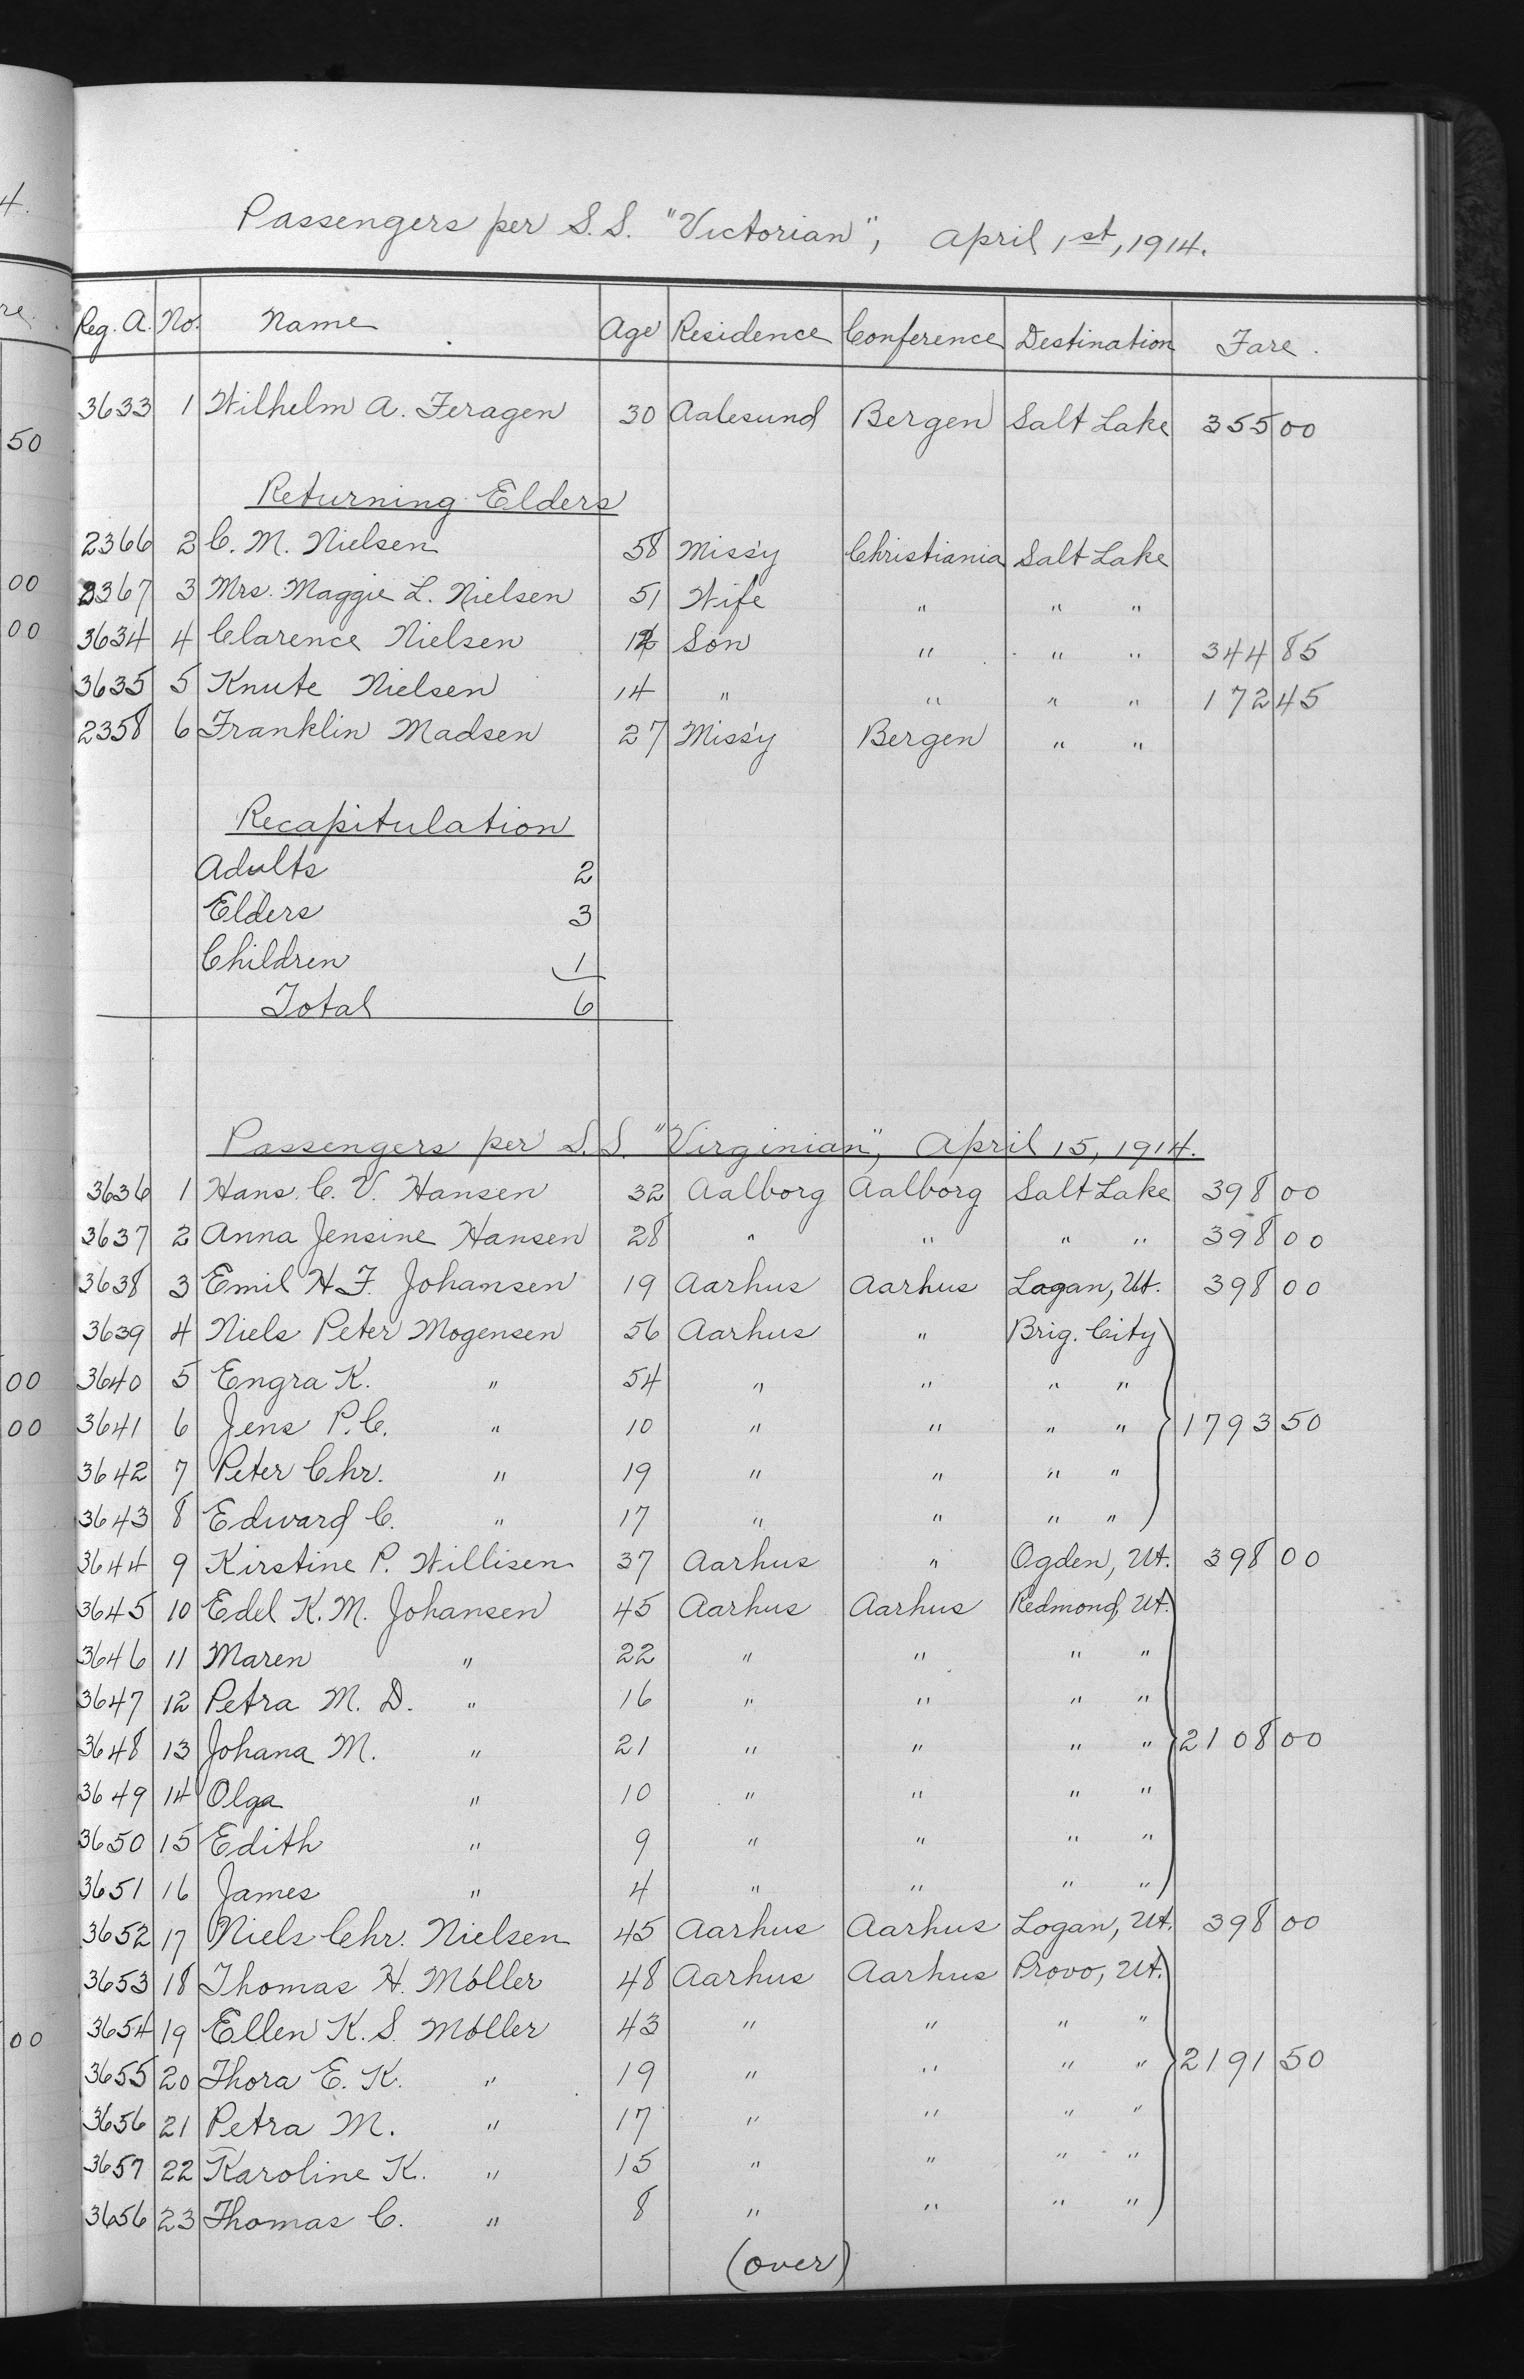 4.
Passengers per S.S. "Victorian", April 1st, 1914.
re.
Reg. A. No. Name Age Residence Conference Destination Fare.
3633 1 Wilhelm A. Feragen 30 Aalesund Bergen Salt Lake 355 00
50
Returning Elders
2366 2 C. M. Nielsen 58 Miss'y Christiania Salt Lake
00
2367 3 Mrs. Maggie L. Nielsen 51 Wife " " "
00
3634 4 Clarence Nielsen Son " " " 344 85
3635 5 Knute Nielsen 14 " " " " 172 45
2358 6 Franklin Madsen 27 Miss'y Bergen " "
Recapitulation
Adults 2
Elders 3
Children 1
Total 6
Passengers per S.S. "Virginian", April 15, 1914.
3636 1 Hans. C. V. Hansen 32 Aalborg Aalborg Salt Lake 398 00
3637 2 Anna Jensine Hansen 28 " " " " 398 00
3638 3 Emil H. F. Johansen 19 Aarhus Aarhus Logan, Ut. 398 00
3639 4 Niels Peter Mogensen 56 Aarhus " Brig. City
00
3640 5 Engra K. " 54 " " " "
00
3641 6 Jens P. C. " 10 " " " " 1793 50
3642 7 Peter Chr. " 19 " " " "
3643 8 Edward C. " 17 " " " "
3644 9 Kirstine P. Willisen 37 Aarhus " Ogden, Ut. 398 00
3645 10 Edel K. M. Johansen 45 Aarhus Aarhus Redmond, Ut.
3646 11 Maren " 22 " " " "
3647 12 Petra M. D. " 16 " " " "
3648 13 Johana M. " 21 " " " " 2108 00
3649 14 Olga " 10 " " " "
3650 15 Edith " 9 " " " "
3651 16 James " 4 " " " "
3652 17 Niels Chr. Nielsen 45 Aarhus Aarhus Logan, Ut. 398 00
3653 18 Thomas H. Möller 48 Aarhus Aarhus Provo, Ut.
00
3654 19 Ellen K. S. Möller 43 " " " "
3655 20 Thora E. K. " 19 " " " " 2191 50
3656 21 Petra M. " 17 " " " "
3657 22 Karoline K. " 15 " " " "
3656 23 Thomas C. " 8 " " " "
(over)